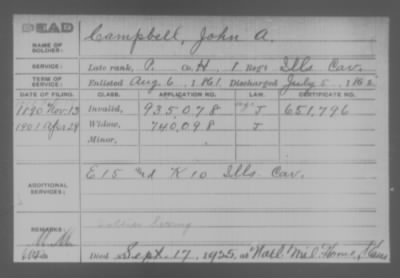 DEAD
NAME OF SOLDIER: Campbell, John A.
SERVICE: Late rank, P. Co. H, 1 Reg't Ills Cav.
TERM OF SERVICE: Enlisted Aug. 6, 1861 Discharged July 5, 1862
DATE OF FILING. CLASS. APPLICATION NO. LAW. CERTIFICATE NO.
1890 Nov. 13 Invalid, 935,078 J 651,796
1901 Apr 29 Widow, 740,098 J
Minor,
ADDITIONAL SERVICES: E 15 and K 10 Ills. Cav.
REMARKS: Soldier
Died Sept. 17, 1925, at Natl. Mil. Home, Kans